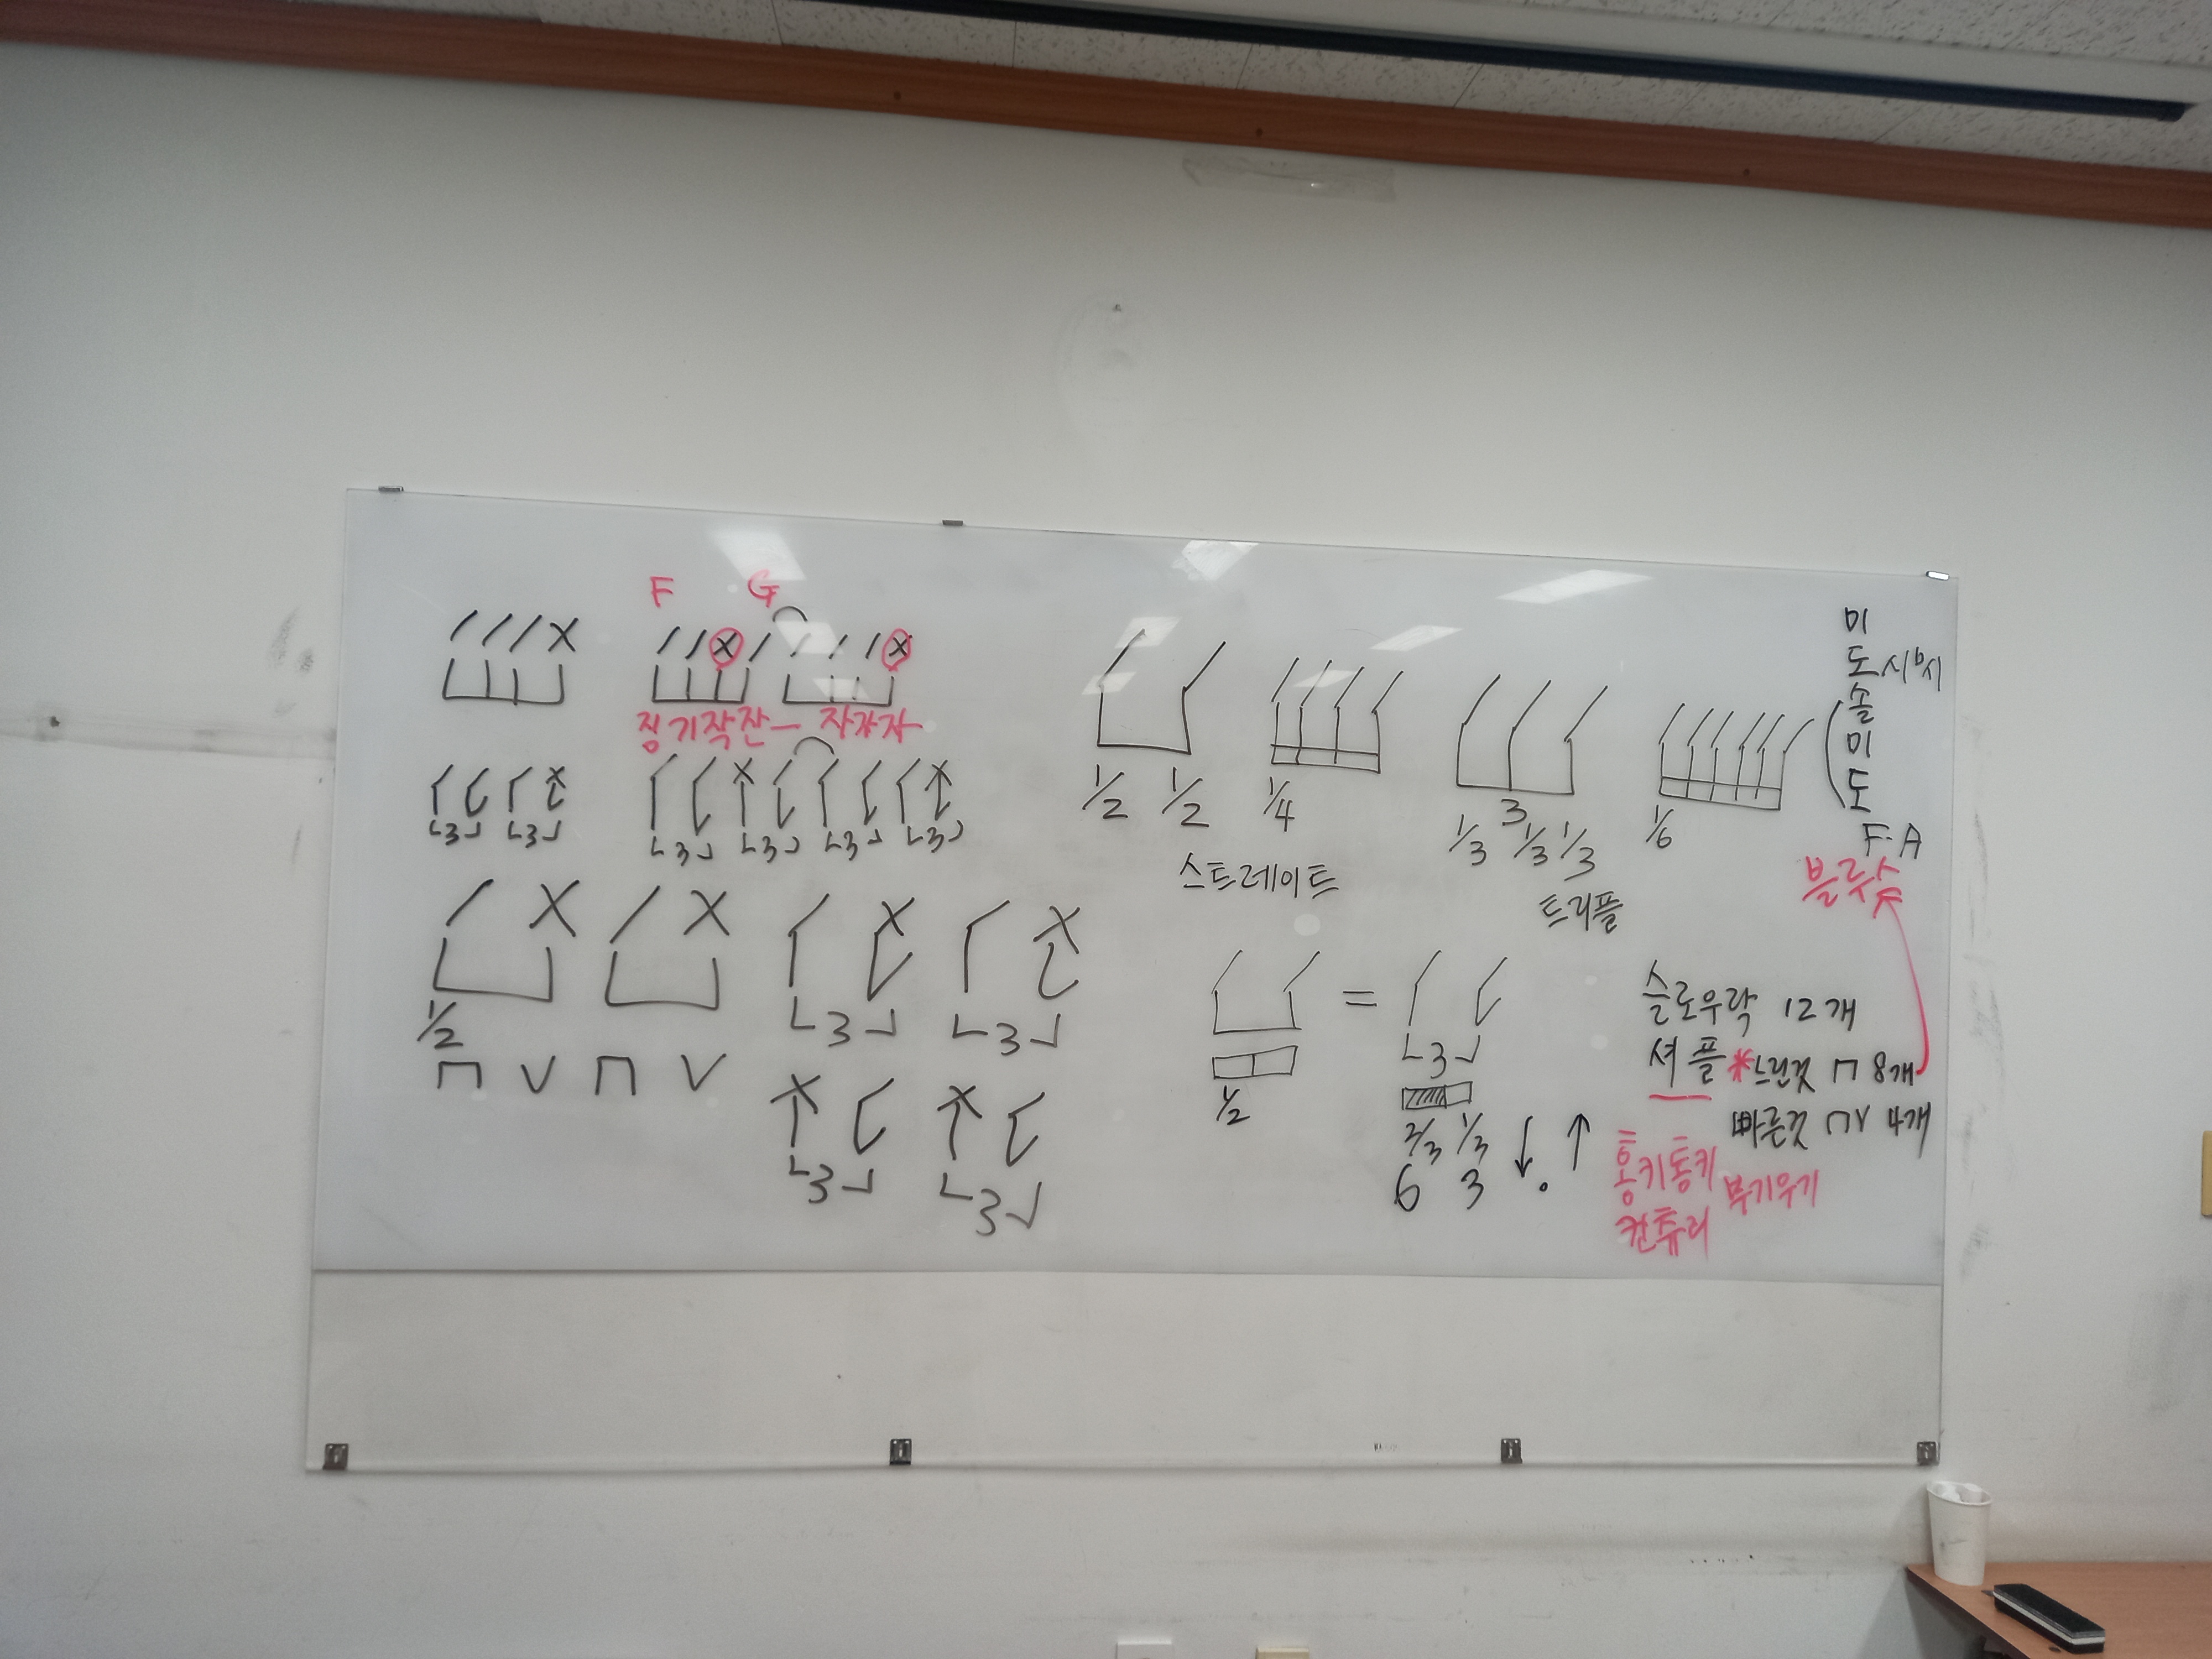 F G
징기작잔— 자가자
3 3
3 3 3 3
1/2
3 3
3 3
1/2 1/2
스트레이트
1/4
3
1/3 1/3 1/3
트리플
1/6
미
도 시 b시
솔
미
도
F·A
블루스
=
3
1/2
2/3 1/3
6 3
슬로우락 12개
셔플 *느린것 ⊓ 8개
빠른것 ⊓V 4개
홍키통키 부기우기
컨츄리